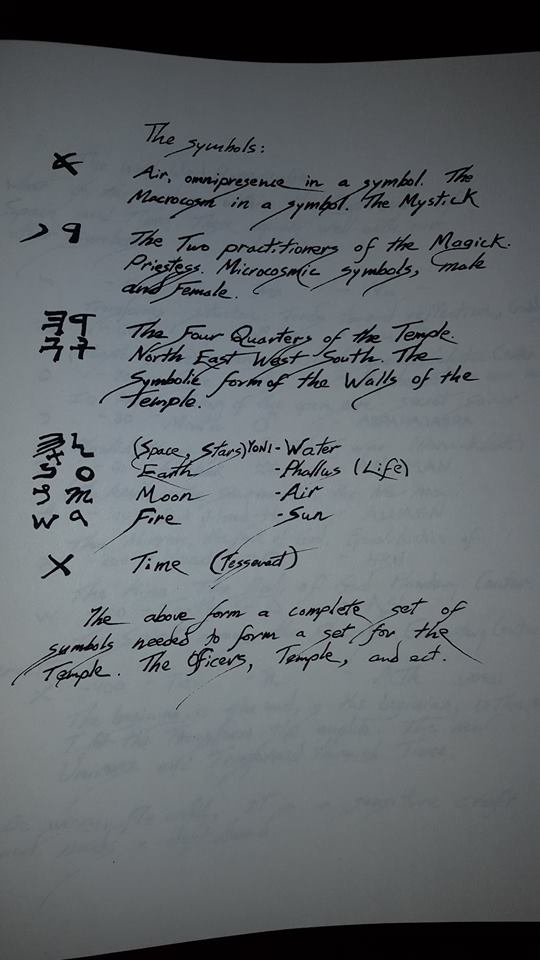 The symbols:
Air, omnipresence in a symbol. The
Macrocosm in a symbol. The Mystick
The Two practitioners of the Magick.
Priestess. Microcosmic symbols, male
and Female.
The Four Quarters of the Temple.
North East West South. The
Symbolic form of the Walls of the
Temple.
(Space, Stars) YONI - Water
Earth - Phallus (Life)
Moon - Air
Fire - Sun
X Time (Tesseract)
The above form a complete set of
symbols needed to form a set for the
Temple. The Officers, Temple, and ect.